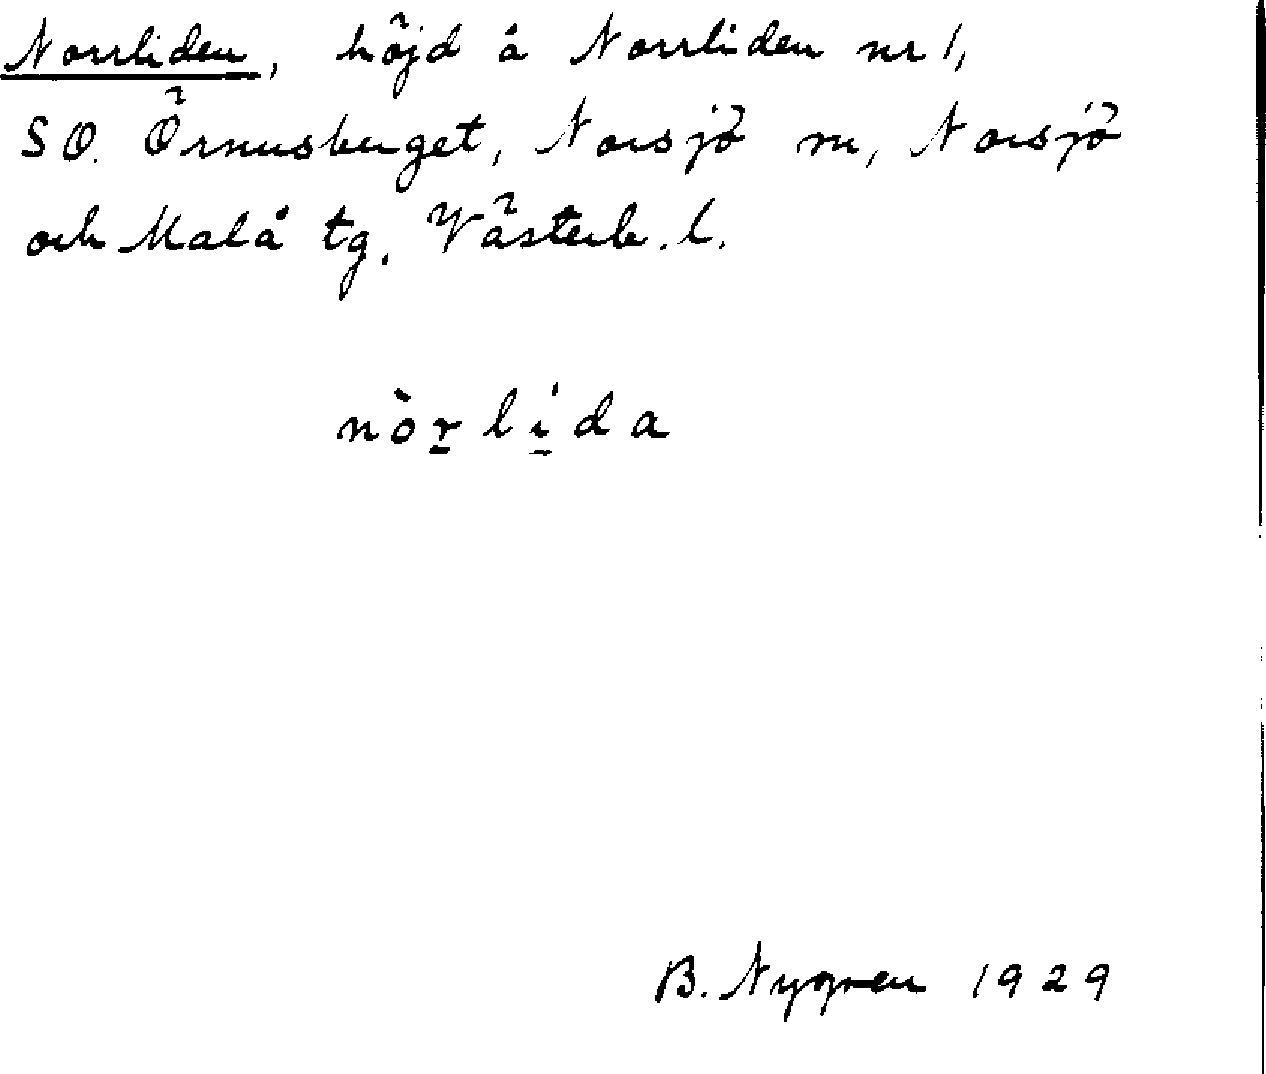 Norrliden, höjd å Norrliden nr 1,
SO. Örnmusberget, Norsjö sn, Norsjö
och Malå tg. Västerb. l.
nòr̲lí̲da
B. Nygren 1929